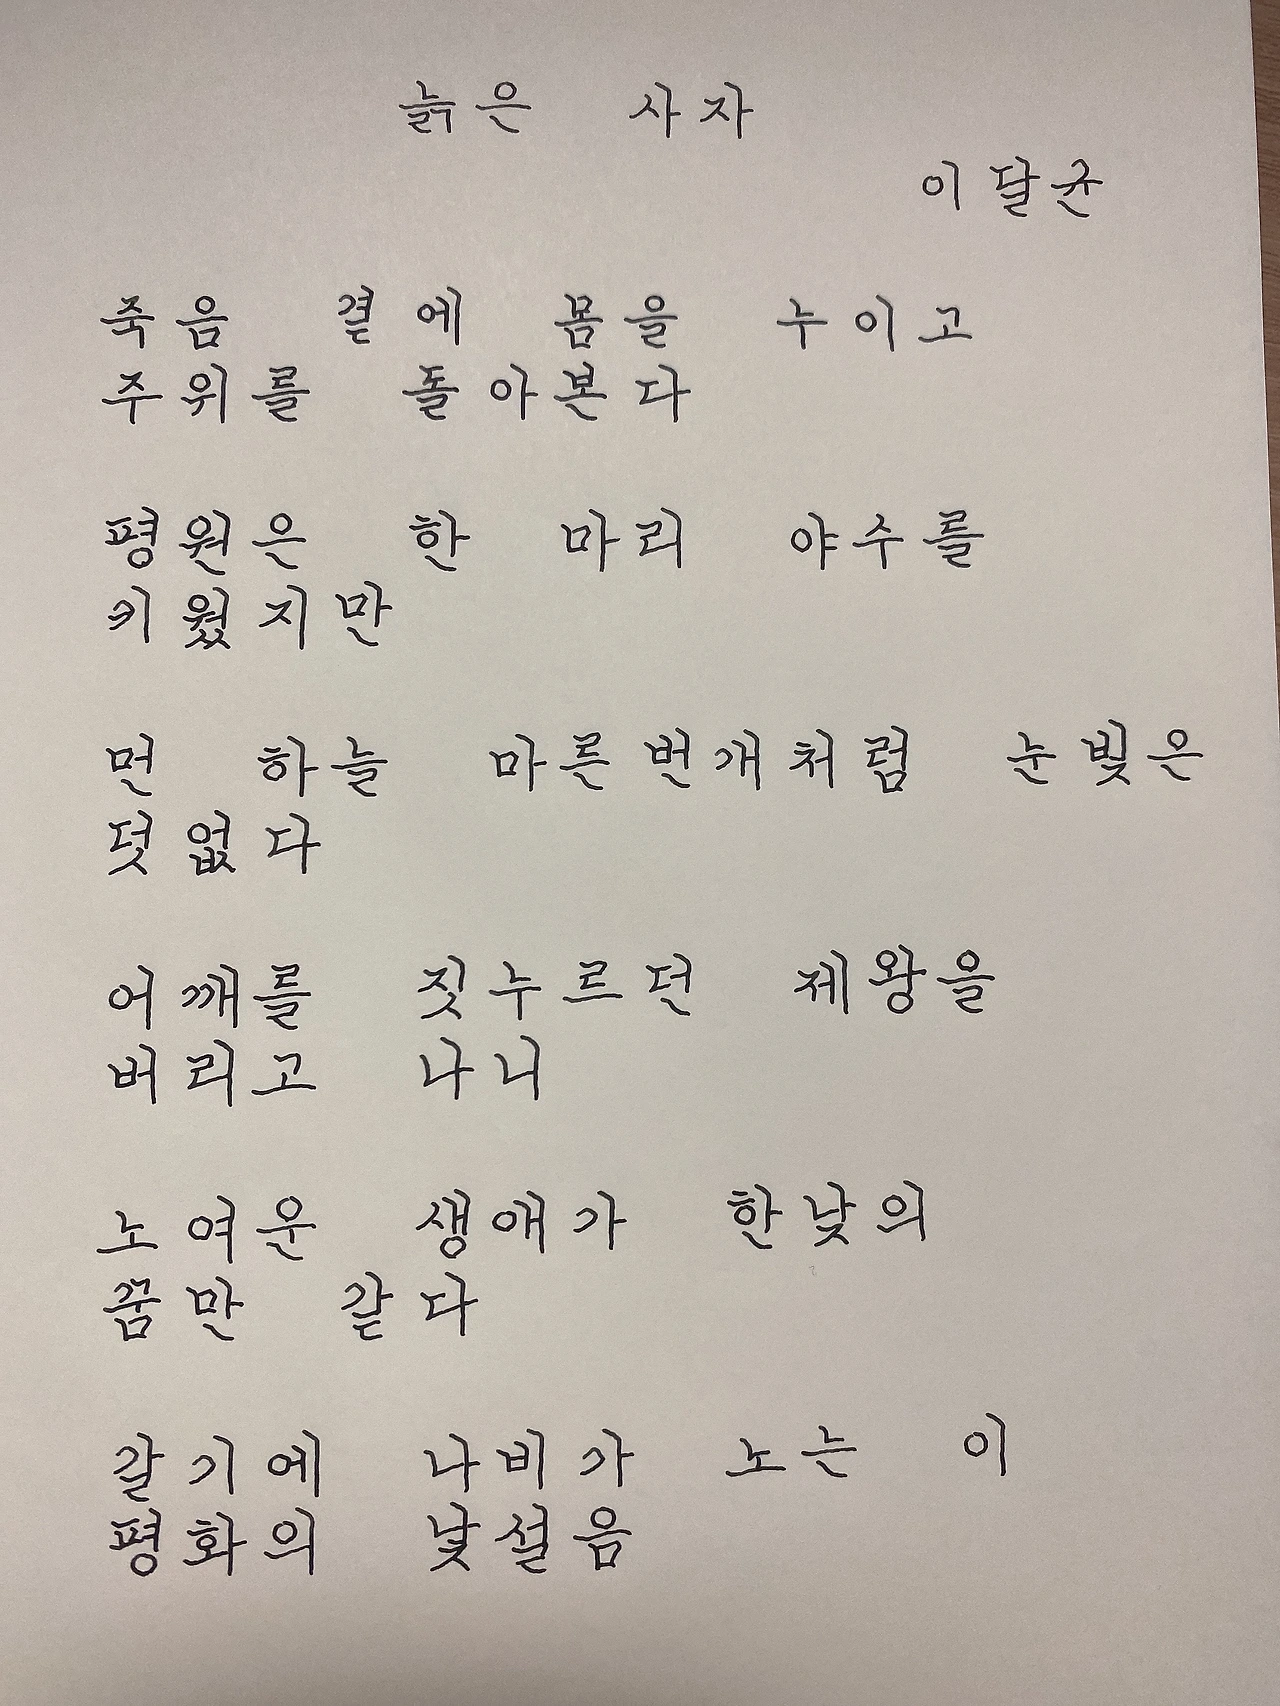 늙은 사자
이달균
죽음 곁에 몸을 누이고
주위를 돌아본다
평원은 한 마리 야수를
키웠지만
먼 하늘 마른번개처럼 눈빛은
덧없다
어깨를 짓누르던 제왕을
버리고 나니
노여운 생애가 한낮의
꿈만 같다
갈기에 나비가 노는 이
평화의 낯설음